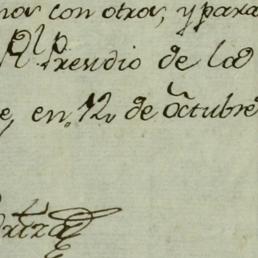 nos con otros, y para
Rl Presidio de la
en 12 de Octubre